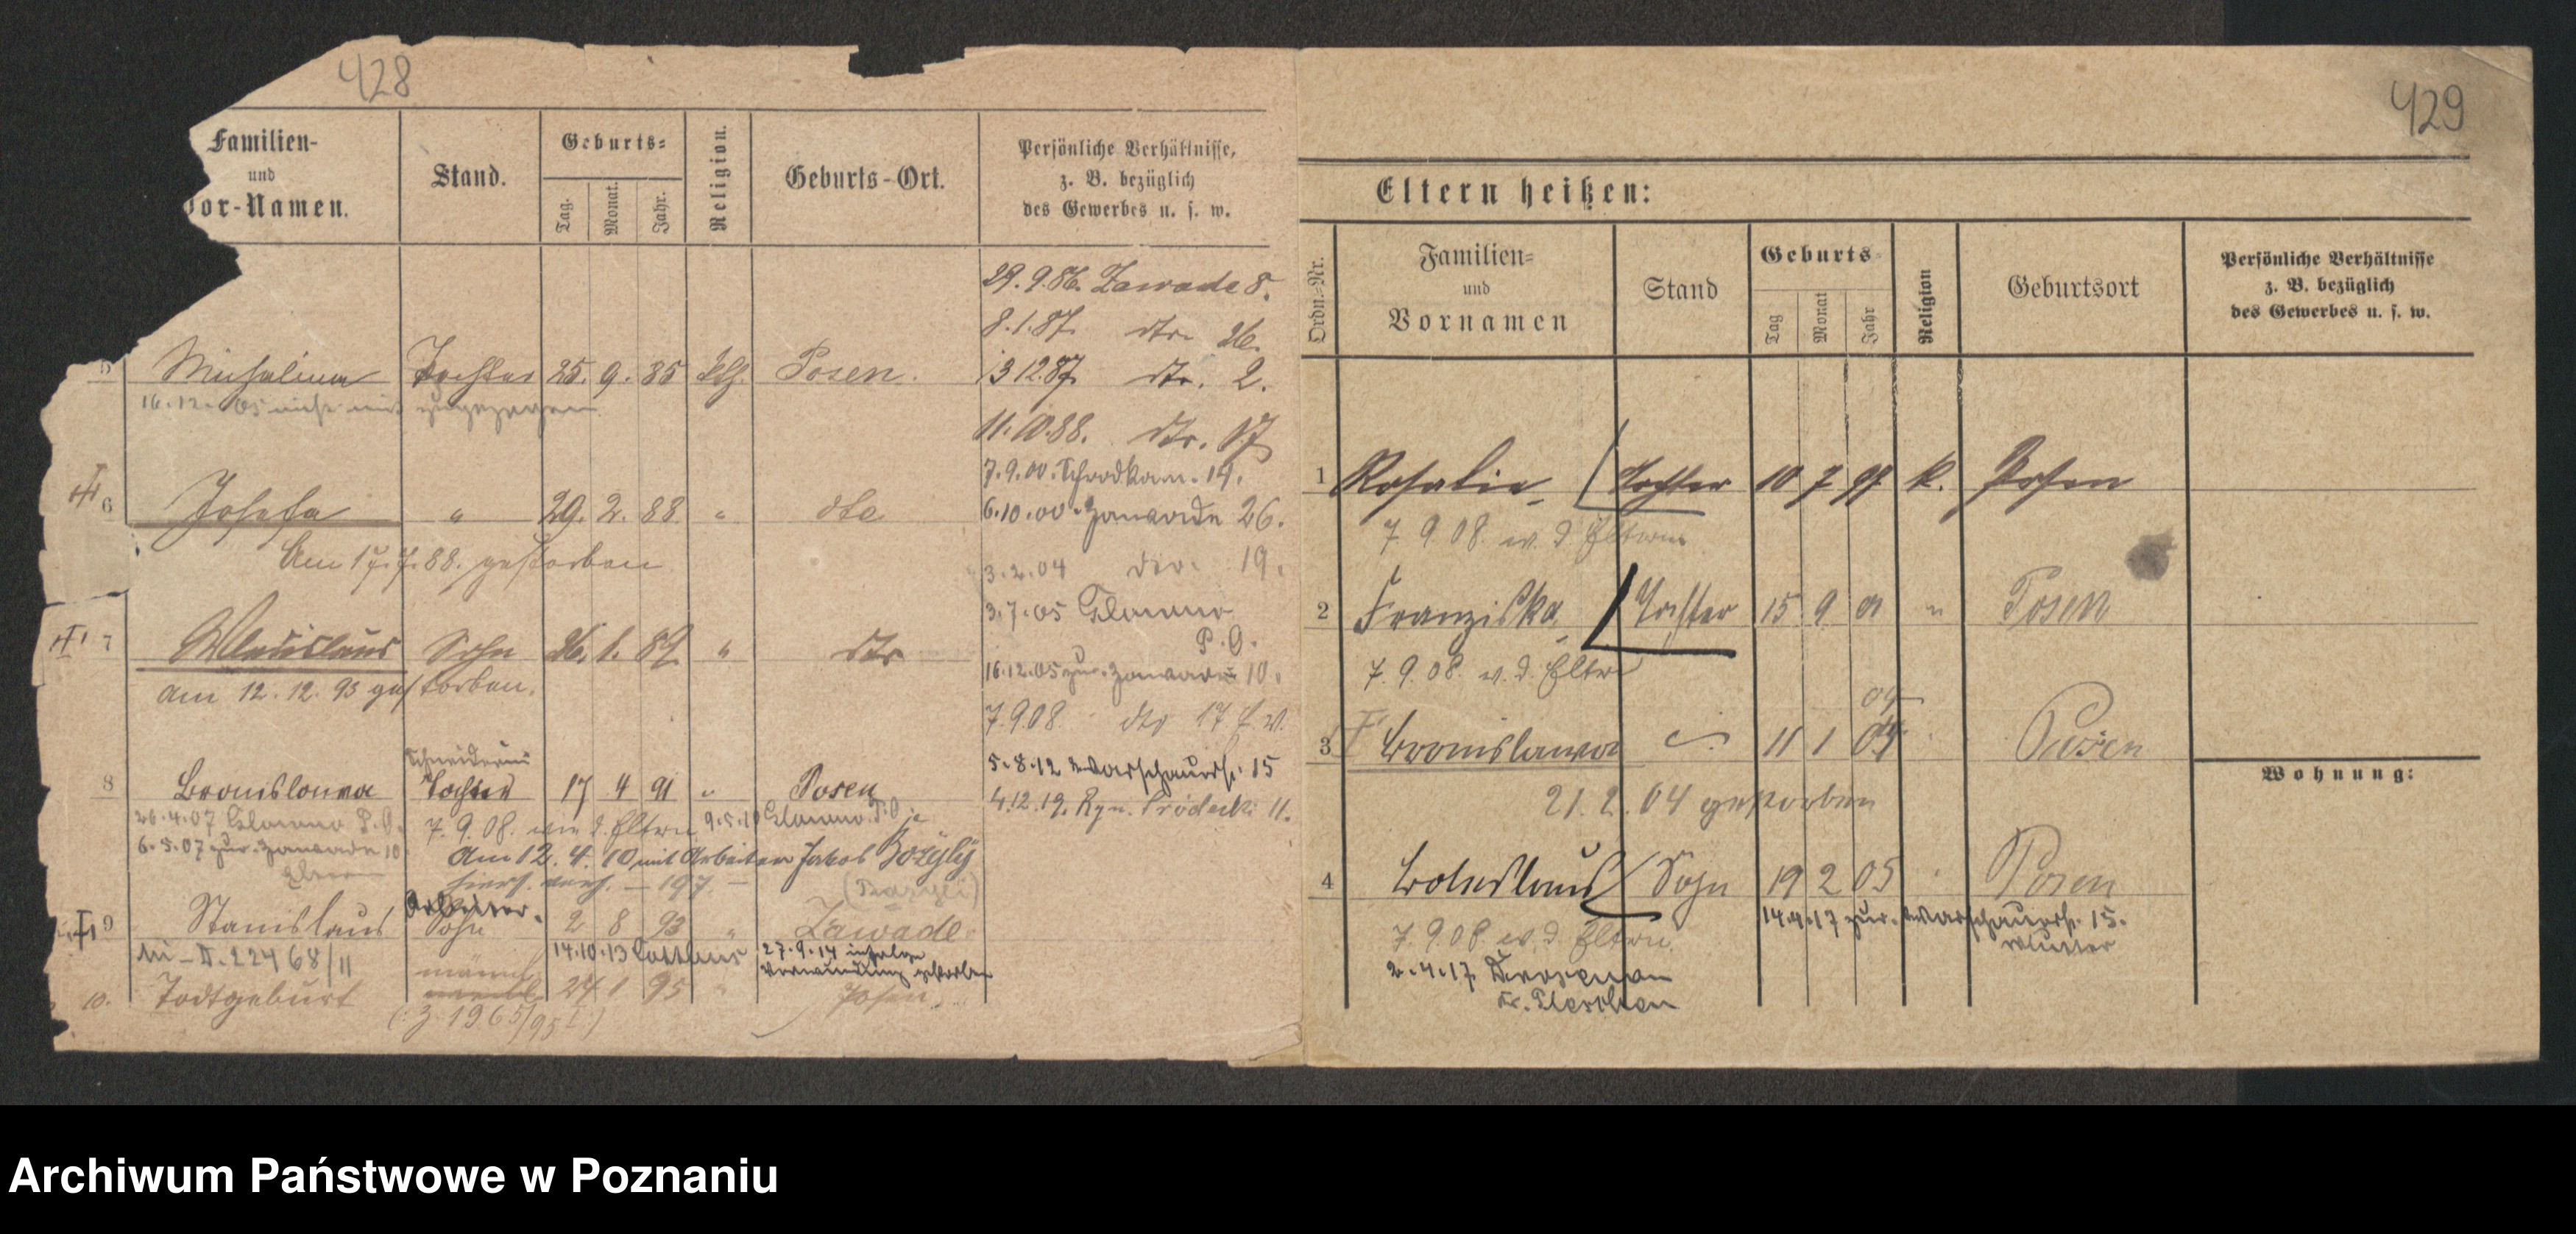 428
Familien-
und
Vor-Namen.
Stand.
Geburts-
Tag. Monat. Jahr.
Religion.
Geburts-Ort.
Persönliche Verhältnisse,
z. B. bezüglich
des Gewerbes u. s. w.
29.9.86. Zawade 8.
8.1.87. dto 26.
5 Michalina Tochter 25. 9. 85 kth. Posen.
3 12.87. dto. 2.
16.12.05 nicht mit zugezogen.
11.10.88. dto. 17
7.9.00. Schrodkam. 19.
6 Josefa " 29. 2. 88. " dto
6.10.00. Zawade 26.
Am 17.7.88. gestorben
3.2.04 dto. 19.
3.7.05 Glowno
P.O.
7 Wladislaus Sohn 26. 6. 89 " dto
16.12.05 zur. Zawade 10.
am 12.12.93 gestorben.
7.9.08. dto 17
Schneiderin
5.8.12 Warschauerstr. 15
8 Bronislawa Tochter 17 4 91 " Posen
4.12.19. Ryn. Śródecki 11.
26.4.07 Glowno P.O.
7.9.08. wie d. Eltern 9.5.10 Glowno P.O.
6.5.07 zur. Zawade 10
Eltern
Am 12. 4. 10 mit Arbeiter Jakob
hiers. verh. — 197. —
Arbeiter.
9 Stanislaus Sohn 2 8 93 " Zawade.
14.10.13 Cottbus
27.9.14 infolge
Verwundung gestorben
männl.
10. Todtgeburt weibl. 24 1 95 " Posen.
(: J. 1965/95 I:)
429
Eltern heißen:
Ordn.-Nr.
Familien-
und
Vornamen
Stand
Geburts-
Tag Monat Jahr
Religion
Geburtsort
Persönliche Verhältnisse
z. B. bezüglich
des Gewerbes u. s. w.
1 Rosalie Tochter 10 7 97 k. Posen
7. 9. 08. w. d. Eltern
2 Franziska Tochter 15 9 01 " Posen
7. 9. 08. w. d. Eltern
04
3 Bronislawa " 11 1 04 Posen
21. 2. 04 gestorben
Wohnung:
4 Boleslaus Sohn 19 2 05 " Posen
14.4.17 zur. Warschauerstr. 15.
Mutter
7. 9. 08 w. d. Eltern.
2.4.17.
Kr. Pleschen
Archiwum Państwowe w Poznaniu